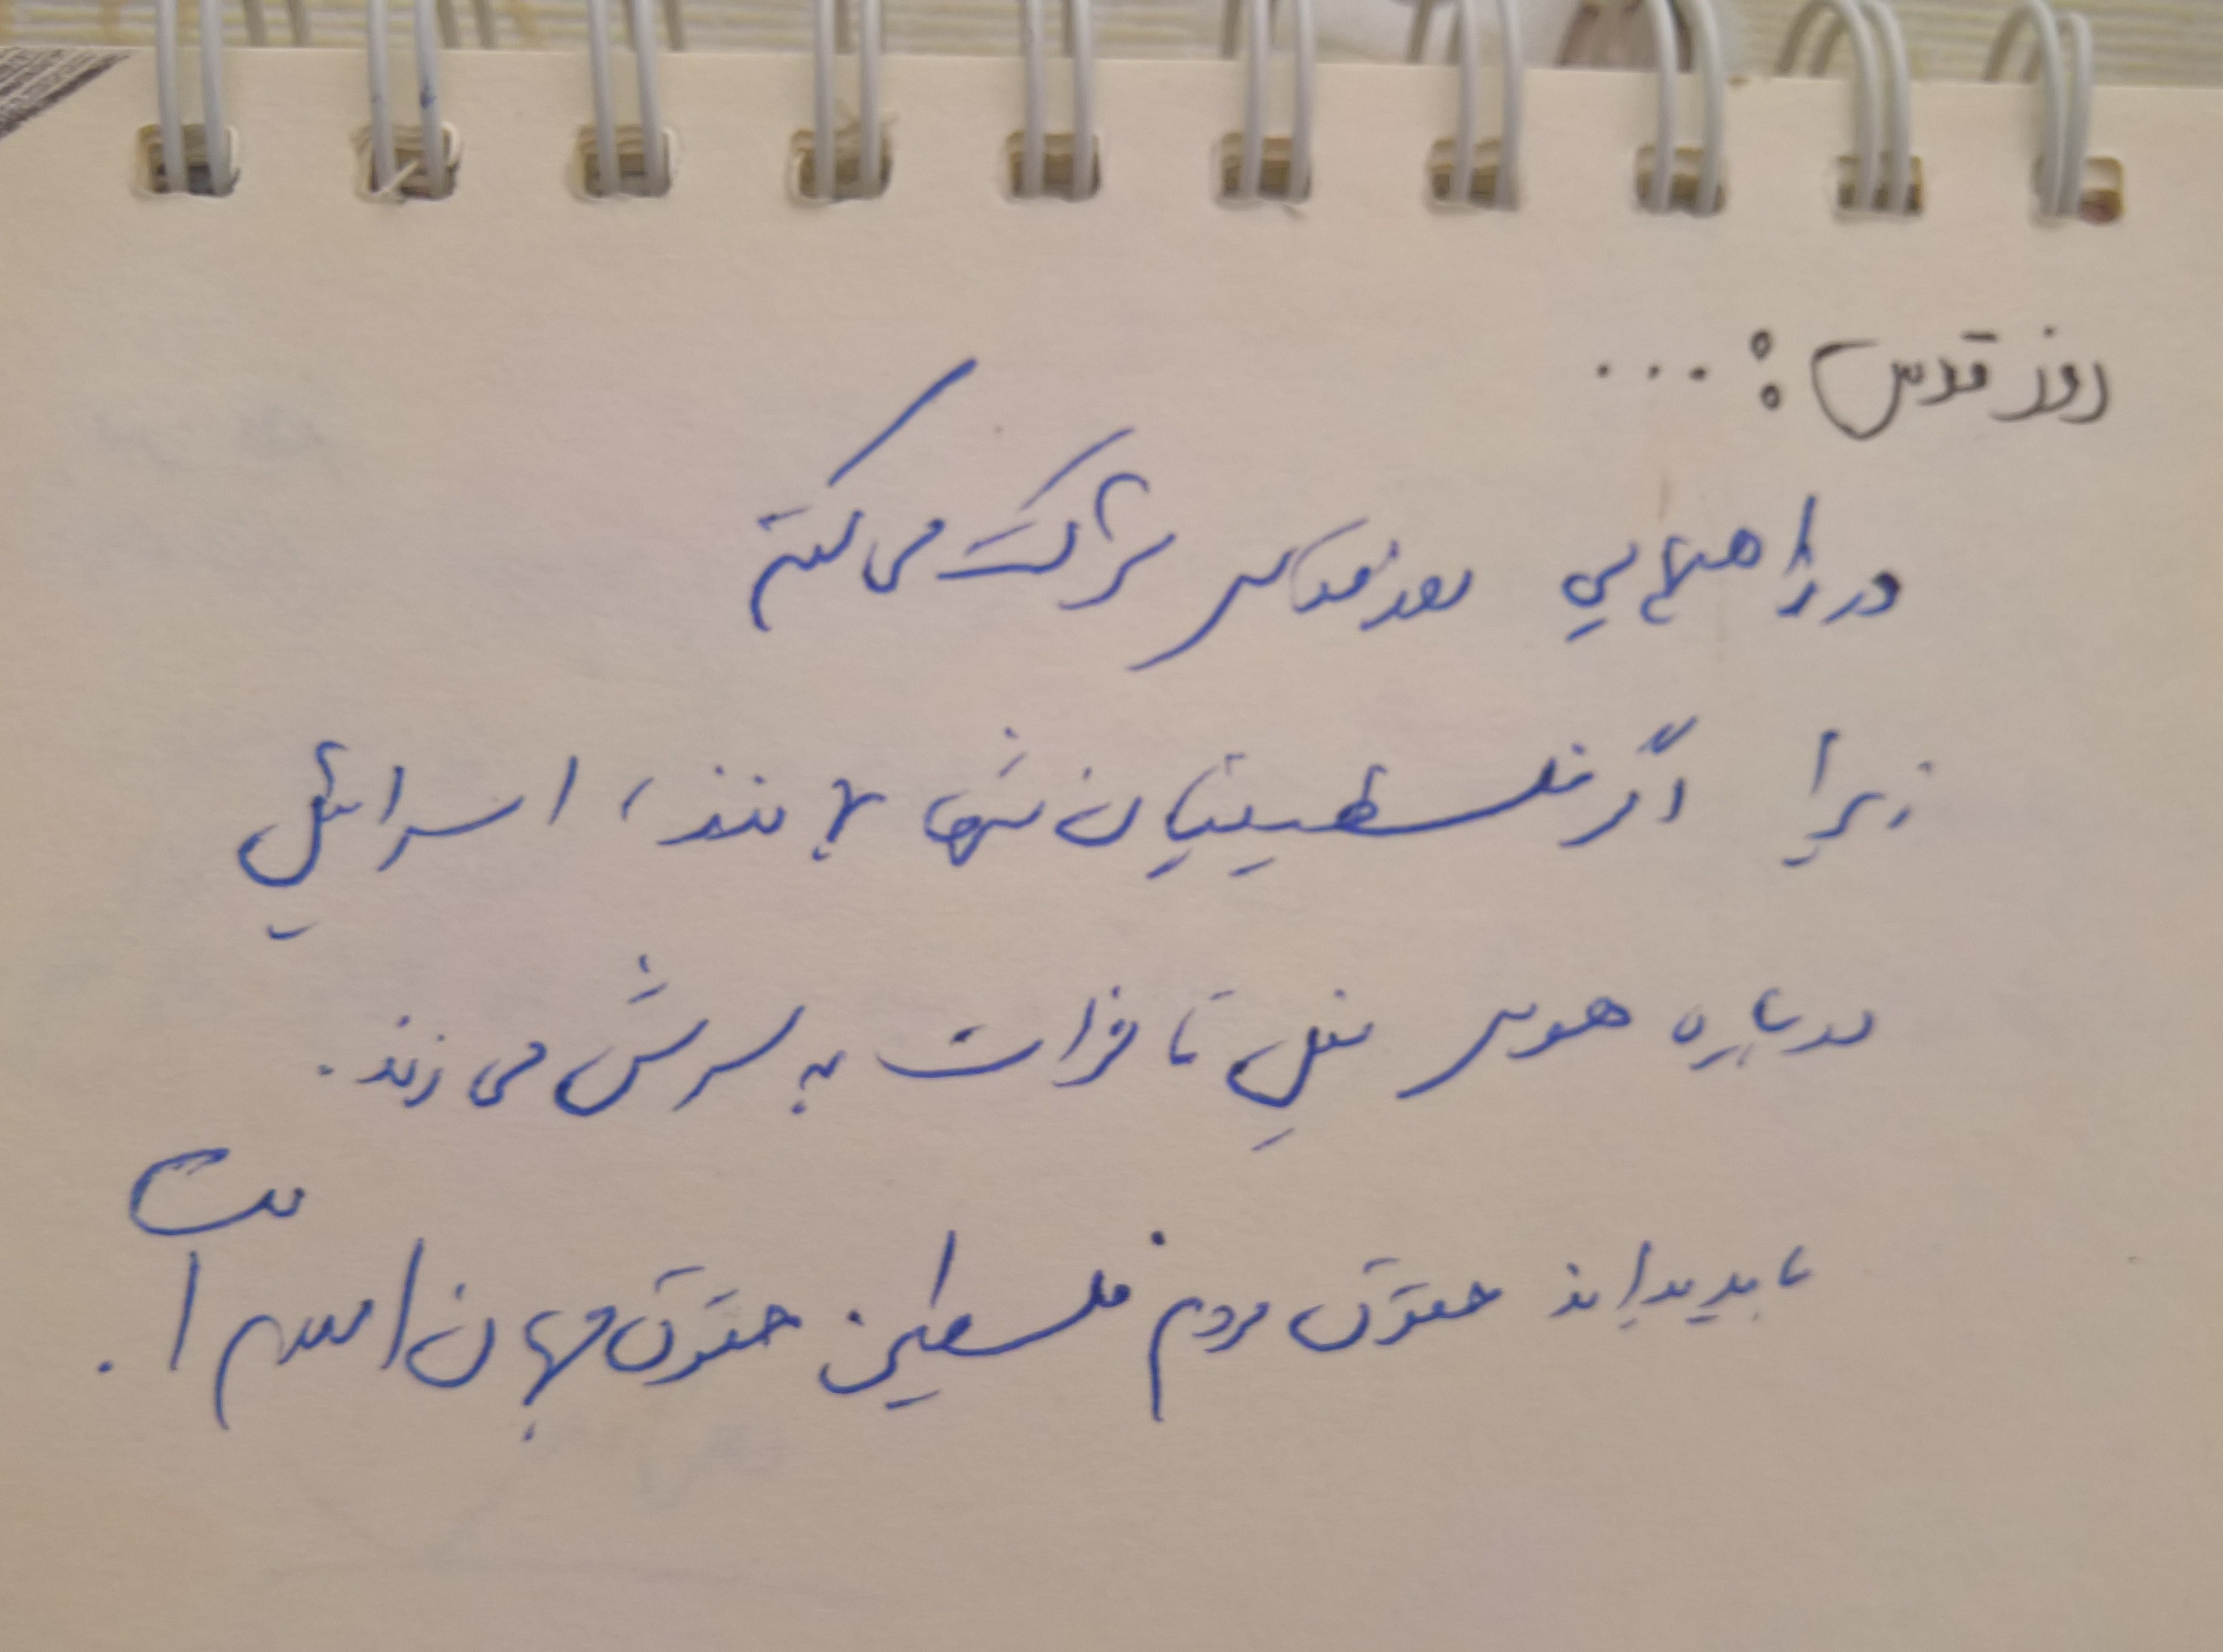 روز قدس: ...
در راهپیمایی روز قدس شرکت می کنیم
زیرا اگر فلسطینیان تنها بمانند، اسرائیل
دوباره هوس نیل تا فرات به سرش می زند.
باید بداند حقوق مردم فلسطین حقوق جهان اسلام است.